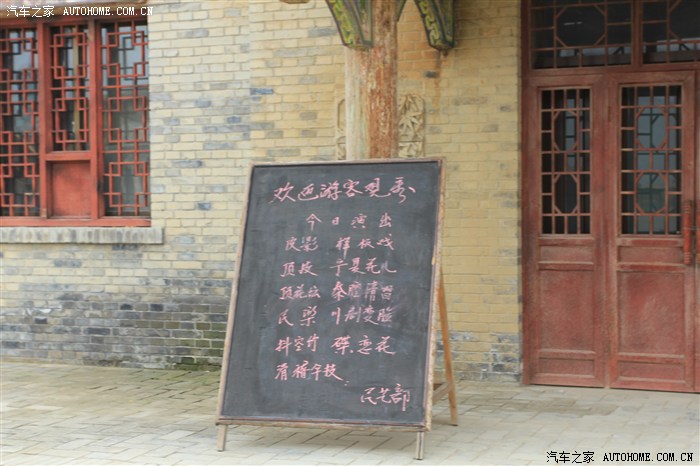 汽车之家 AUTOHOME.COM.CN
欢迎游客观看
今日演出
皮影 样板戏
顶技 宁夏花儿
顶花坛 秦腔清唱
民乐 川剧变脸
抖空竹 碟恋花
民艺部
汽车之家 AUTOHOME.COM.CN